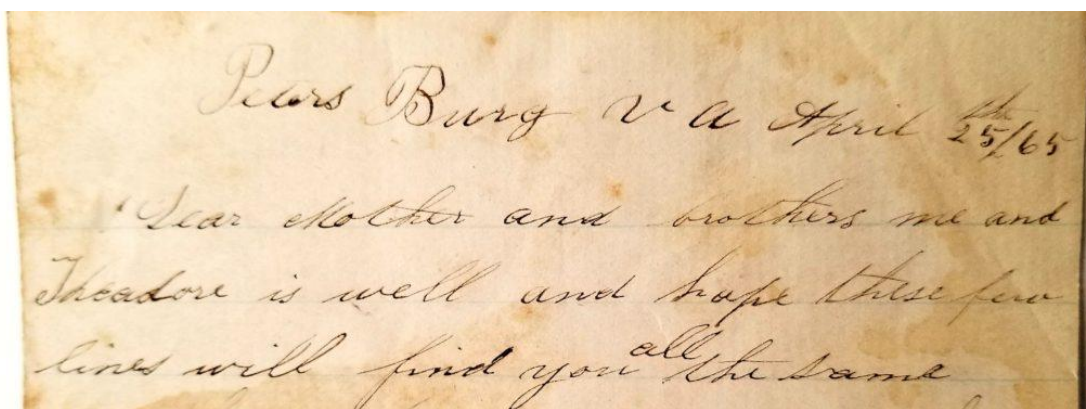 Peters Burg V a April 25th/65
Dear Mother and brothers me and
Theadore is well and hope these few
lines will find you all the same